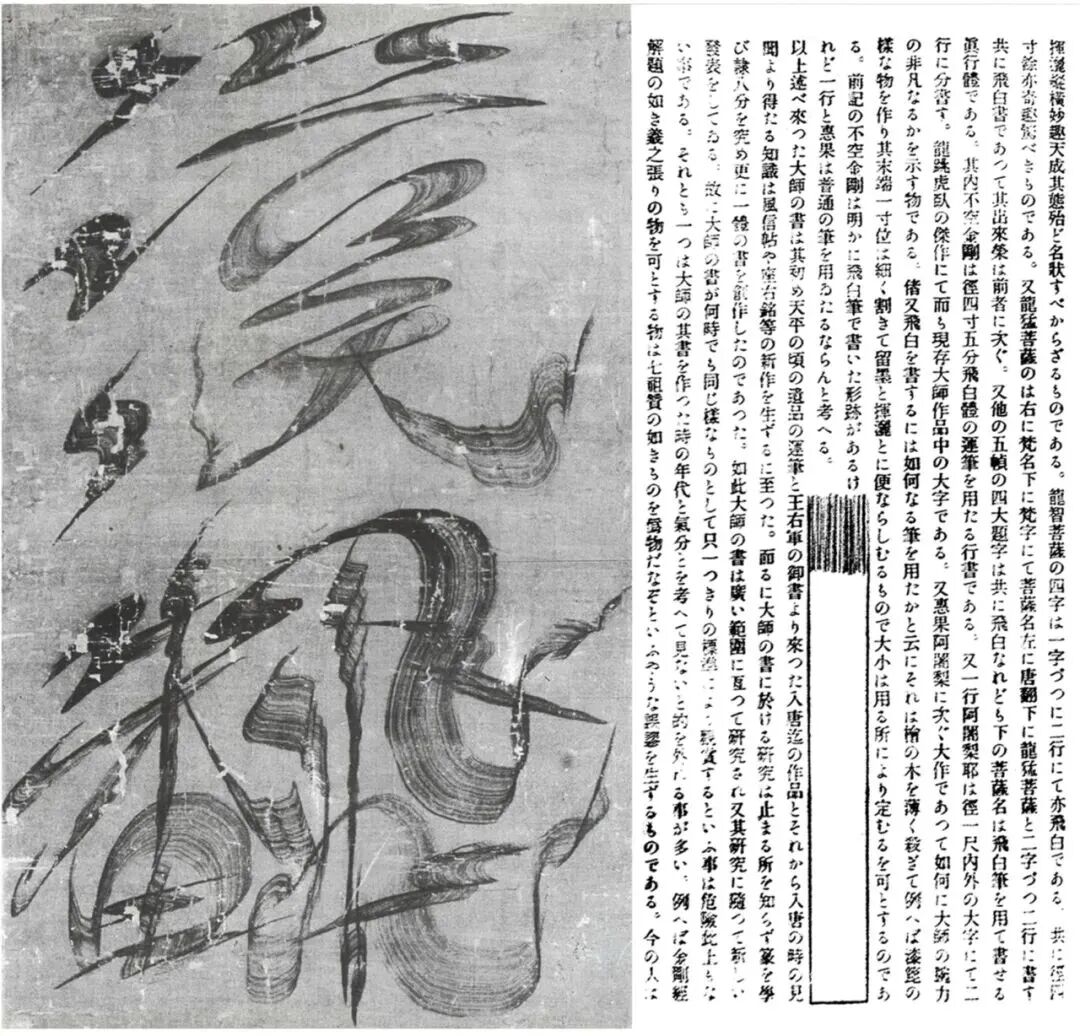 揮灑縱橫妙趣天成其態殆ど名狀すべからざるものである。龍智菩薩の四字は一字づつに二行にて亦飛白である。共に徑
寸餘亦奇趣驚べきものである。又龍猛菩薩のは右に梵名下に梵字にて菩薩名左に唐翻下に龍猛菩薩と二字づつ二行に書す
共に飛白書であつて其出來榮は前者に次ぐ。又他の五幀の四大題字は共に飛白なれども下の菩薩名は飛白筆を用て書せる
眞行體である。其內不空金剛は徑四寸五分飛白體の運筆を用たる行書である。又一行阿闍梨耶は徑一尺內外の大字にて二
行に分書す。龍跳虎臥の傑作にて而も現存大師作品中の大字である。又惠果阿闍梨に次ぐ大作であつて如何に大師の腕力
の非凡なるかを示す物である。偖又飛白を書するには如何なる筆を用たかと云にそれは檜の木を薄く殺ぎて例へば漆箆の
樣な物を作り其末端一寸位は細く割きて留墨と揮灑とに便ならしむるもので大小は用る所により定むるを可とするのであ
る。前記の不空金剛は明かに飛白筆で書いた形跡があるけ
れど一行と惠果は普通の筆を用ゐたるならんと考へる。
以上述べ來つた大師の書は其初め天平の頃の遺品の運筆と王右軍の御書より來つた入唐迄の作品とそれから入唐の時の見
聞より得たる知識は風信帖や座右銘等の新作を生ずるに至つた。而るに大師の書に於ける研究は止まる所を知らず篆を學
び隷八分を究め更に一體の書を創作したのであつた。如此大師の書は廣い範圍に亙つて研究され又其研究に隨つて新しい
發表をしてゐる。故に大師の書が何時でも同じ樣なものとして只一つきりの標準によつて鑑賞するといふ事は危險此上もな
い事である。それとも一つは大師の其書を作つた時の年代と氣分とを考へて見ないと的を外れる事が多い。例へば金剛經
解題の如き羲之張りの物を可とする物は七祖贊の如きものを僞物だなぞといふやうな誤謬を生ずるものである。今の人は